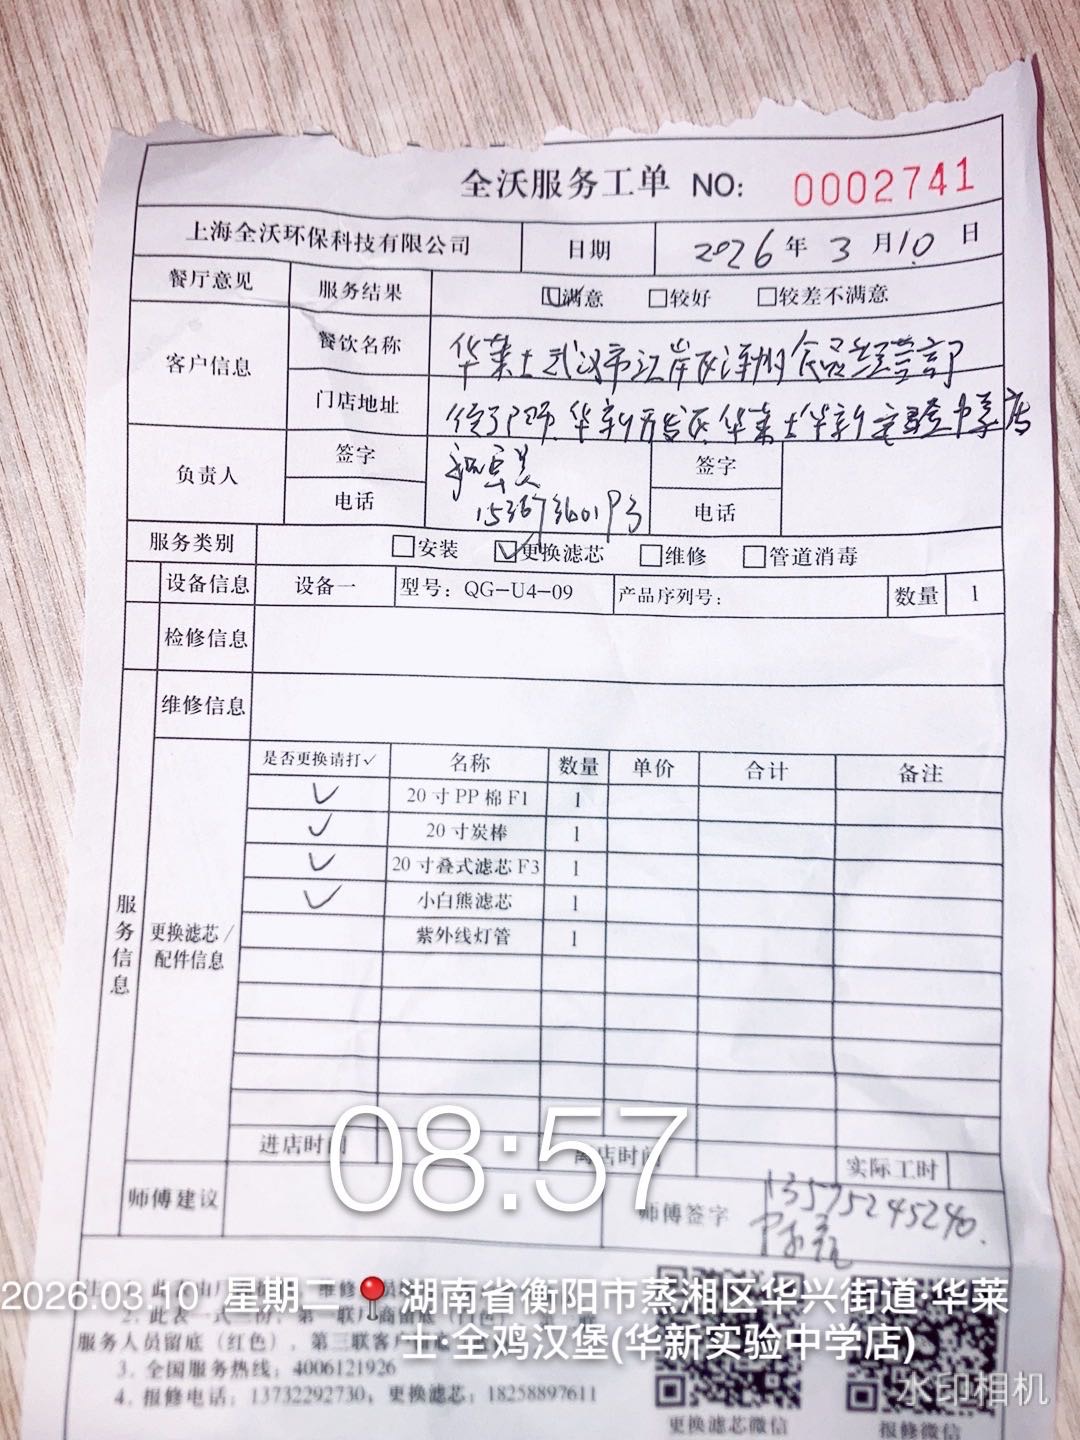 全沃服务工单 NO: 0002741
上海全沃环保科技有限公司 日期 2026年3月10日
餐厅意见 服务结果 ☑满意 □较好 □较差不满意
客户信息 餐饮名称 华莱士武汉市江岸区 食品经营部
门店地址 华新开发区华莱士华新实验中学店
负责人 签字 签字
电话 电话
服务类别 □安装 ☑更换滤芯 □维修 □管道消毒
设备信息 设备一 型号：QG-U4-09 产品序列号： 数量 1
检修信息
维修信息
服务信息
更换滤芯/配件信息
是否更换请打✓ 名称 数量 单价 合计 备注
✓ 20寸PP棉F1 1
✓ 20寸炭棒 1
✓ 20寸叠式滤芯F3 1
✓ 小白熊滤芯 1
紫外线灯管 1
进店时间 离店时间 实际工时
08:57
师傅建议 师傅签字 13575245240.
2026.03.10 星期二 湖南省衡阳市蒸湘区华兴街道·华莱
士·全鸡汉堡(华新实验中学店)
服务人员留底（红色），第三联客
3. 全国服务热线：4006121926
4. 报修电话：13732292730；更换滤芯：18258897611
更换滤芯微信 报修微信
水印相机